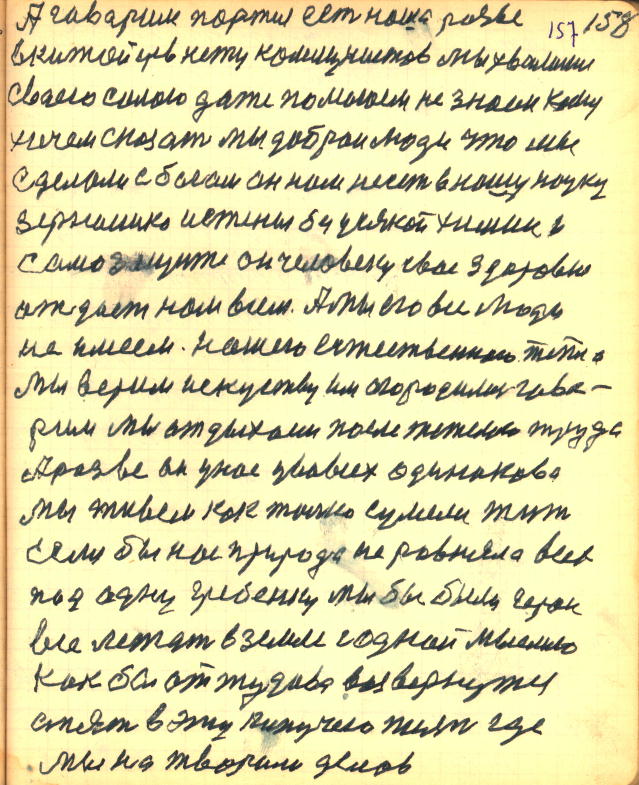 157 158
А гаварим партия ест наша разве
в китайцев нету комунистов мы хвалим
сваею силою даже помагаем не знаем кому
хочем сказат мы добраи люди что мы
сделали с богам он нам несет в нашу науку
зернашико истены бу усякой химии и
самозащите он человеку свае здоровие
отдает нам всем. А мы его все люди
не имеем. нашего естественнаго тепла
мы верим искуству им огородилис гава-
рим мы отдыхаем после тяжелаго труда
А разве он у нас у всех одинаково
мы живем как толко сумели жит
если бы нас природа не ровняла всех
под одну гребенку мы бы были герои
все лежат в земле с одной мыслию
как бы оттудова возвернутся
опят в эту кипучею жизн где
мы на творили делов